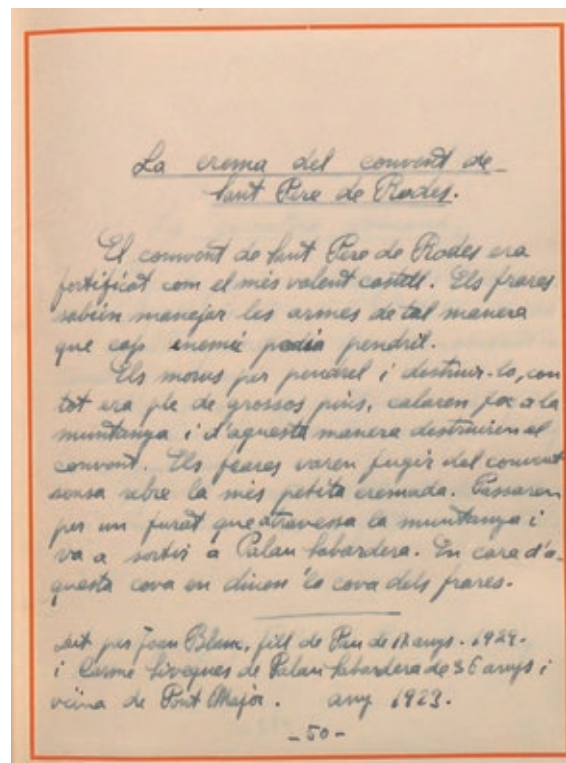 La crema del convent de
Sant Pere de Rodes.
El convent de Sant Pere de Rodes era
fortificat com el més valent castell. Els frares
sabien manejar les armes de tal manera
que cap enemic podia pendril.
Els morus per pendrel i destruir-lo, com
tot era ple de grossos pins, calaren foc a la
muntanya i d'aquesta manera destruiren el
convent. Els frares varen fugir del convent
sensa rebre la més petita cremada. Passaren
per un furat que atravessa la muntanya i
va a sortir a Palau Sabardera. En cara d'a-
questa cova en diuen "la cova dels frares.
Dit per Joan Blanc, fill de Pau de 17 anys. 1924.
i Carme de Palau Sabardera de 36 anys i
veïna de Pont Major. any 1923.
-50-